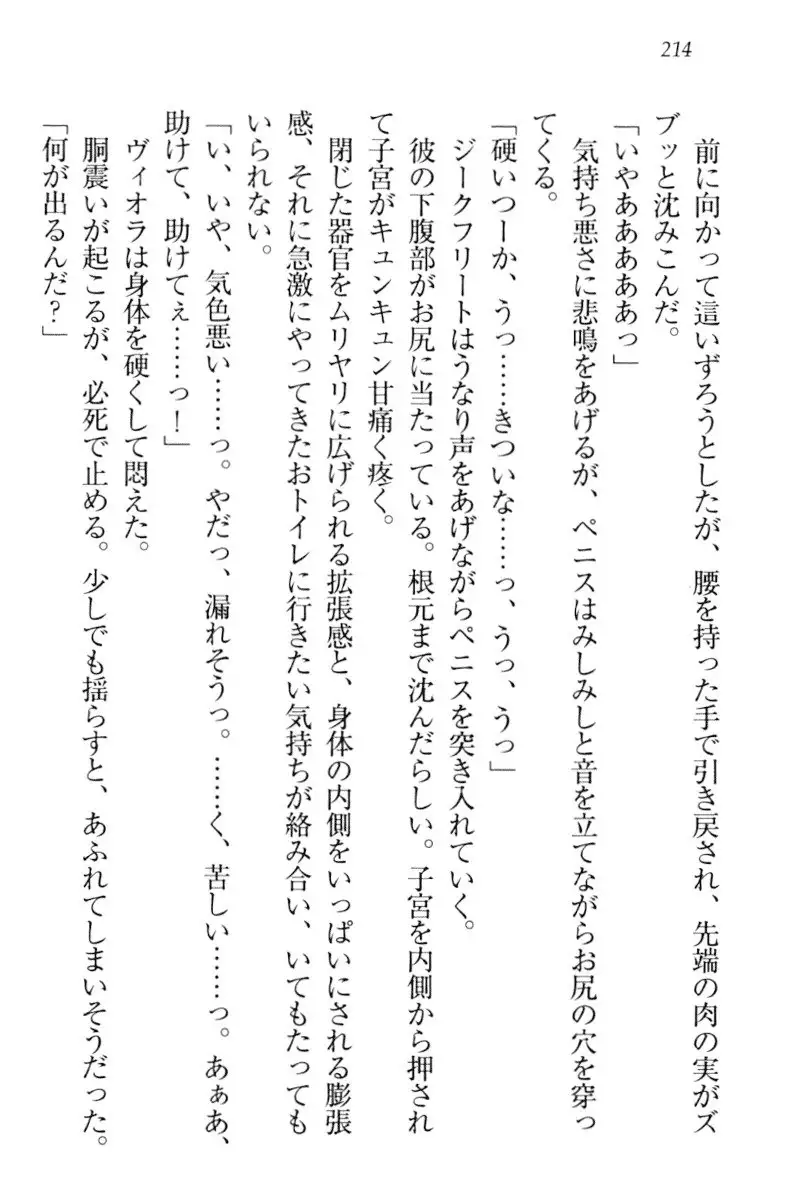 214
前に向かって這いずろうとしたが、腰を持った手で引き戻され、先端の肉の実がズ
ブッと沈みこんだ。
「いやああああああっ」
気持ち悪さに悲鳴をあげるが、ペニスはみしみしと音を立てながらお尻の穴を穿っ
てくる。
「硬いつーか、うっ……きついな……っ、うっ、うっ」
ジークフリートはうなり声をあげながらペニスを突き入れていく。
彼の下腹部がお尻に当たっている。根元まで沈んだらしい。子宮を内側から押され
て子宮がキュンキュン甘痛く疼く。
閉じた器官をムリヤリに広げられる拡張感と、身体の内側をいっぱいにされる膨張
感、それに急激にやってきたおトイレに行きたい気持ちが絡み合い、いてもたっても
いられない。
「い、いや、気色悪い……っ。やだっ、漏れそうっ。……く、苦しい……っ。あぁあ、
助けて、助けてぇ……っ！」
ヴィオラは身体を硬くして悶えた。
胴震いが起こるが、必死で止める。少しでも揺らすと、あふれてしまいそうだった。
「何が出るんだ？」